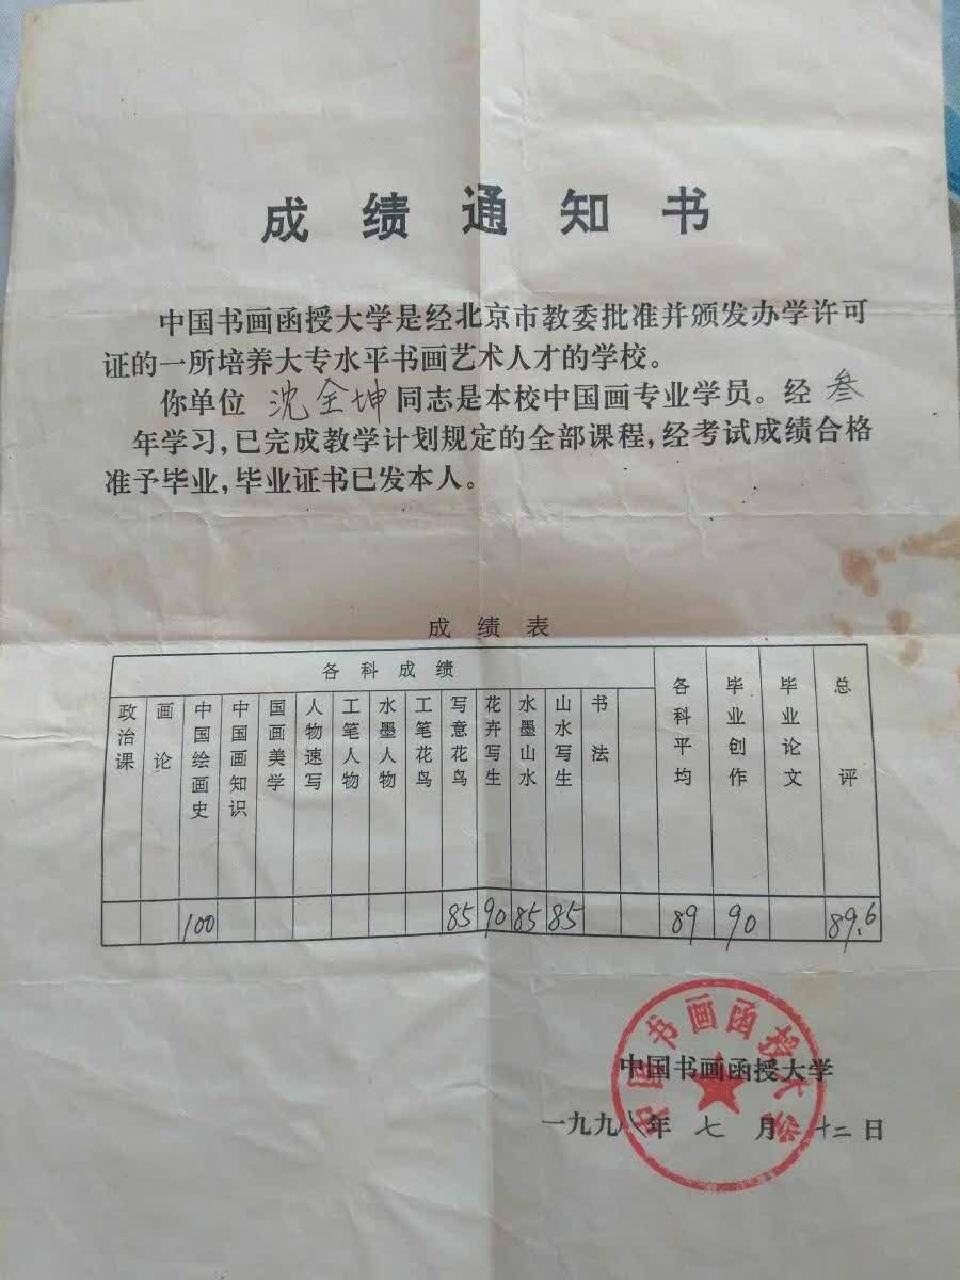 成绩通知书
中国书画函授大学是经北京市教委批准并颁发办学许可
证的一所培养大专水平书画艺术人才的学校。
你单位 沈全坤 同志是本校中国画专业学员。经 叁
年学习,已完成教学计划规定的全部课程,经考试成绩合格
准予毕业,毕业证书已发本人。
成绩表
各科成绩
政治课
画论
中国绘画史
中国画知识
国画美学
人物速写
工笔人物
水墨人物
工笔花鸟
写意花鸟
花卉写生
水墨山水
山水写生
书法
各科平均
毕业创作
毕业论文
总评
100 85 90 85 85 89 90 89.6
中国书画函授大学
中国书画函授大学
一九九八年 七 月 十二日